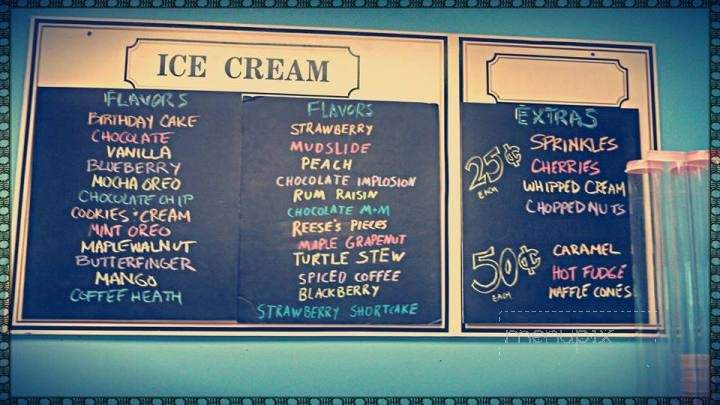 ICE CREAM
FLAVORS
BIRTHDAY CAKE
CHOCOLATE
VANILLA
BLUEBERRY
MOCHA OREO
CHOCOLATE CHIP
COOKIES + CREAM
MINT OREO
MAPLE WALNUT
BUTTERFINGER
MANGO
COFFEE HEATH
FLAVORS
STRAWBERRY
MUDSLIDE
PEACH
CHOCOLATE IMPLOSION
RUM RAISIN
CHOCOLATE M+M
REESE'S PIECES
MAPLE GRAPENUT
TURTLE STEW
SPICED COFFEE
BLACKBERRY
STRAWBERRY SHORTCAKE
EXTRAS
25¢ EACH
SPRINKLES
CHERRIES
WHIPPED CREAM
CHOPPED NUTS
50¢ EACH
CARAMEL
HOT FUDGE
WAFFLE CONES
menupix